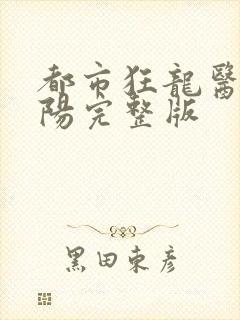 都市狂龍醫
陽完整版
黑田東彥